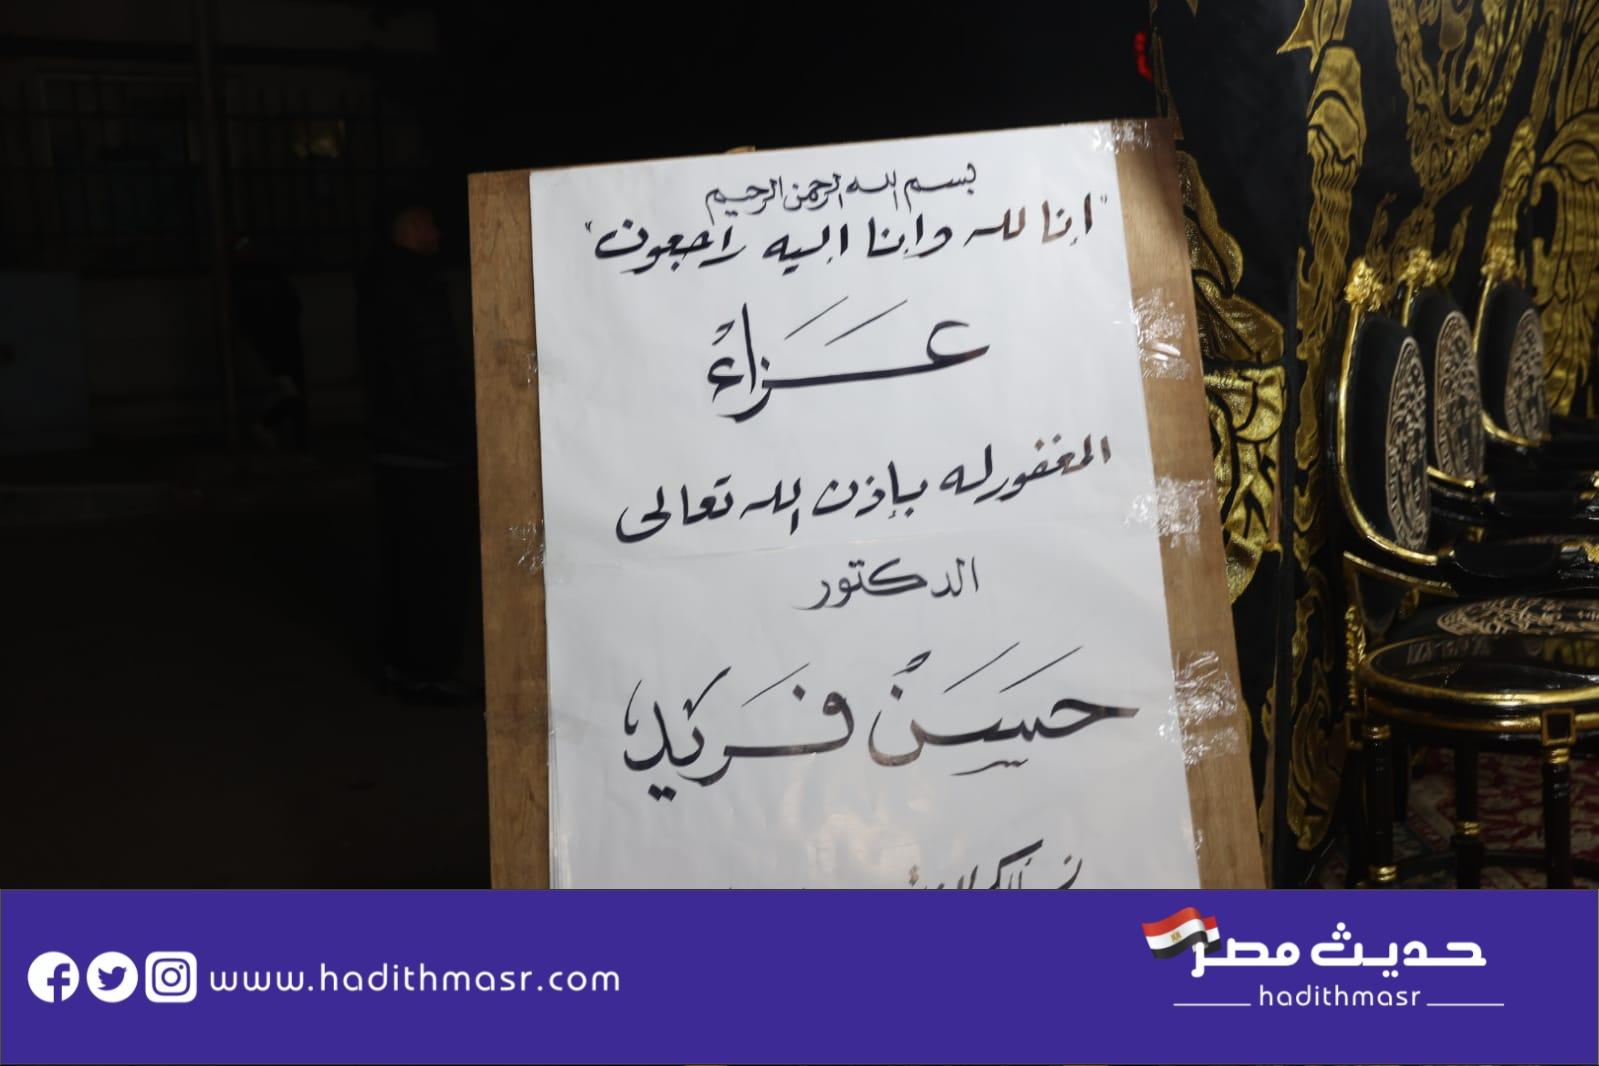 بسم الله الرحمن الرحيم
"إنا لله وإنا إليه راجعون"
عَزَاءْ
المغفور له بإذن الله تعالى
الدكتور
حَسَنْ فَريد
www.hadithmasr.com
حديث مصر
hadithmasr